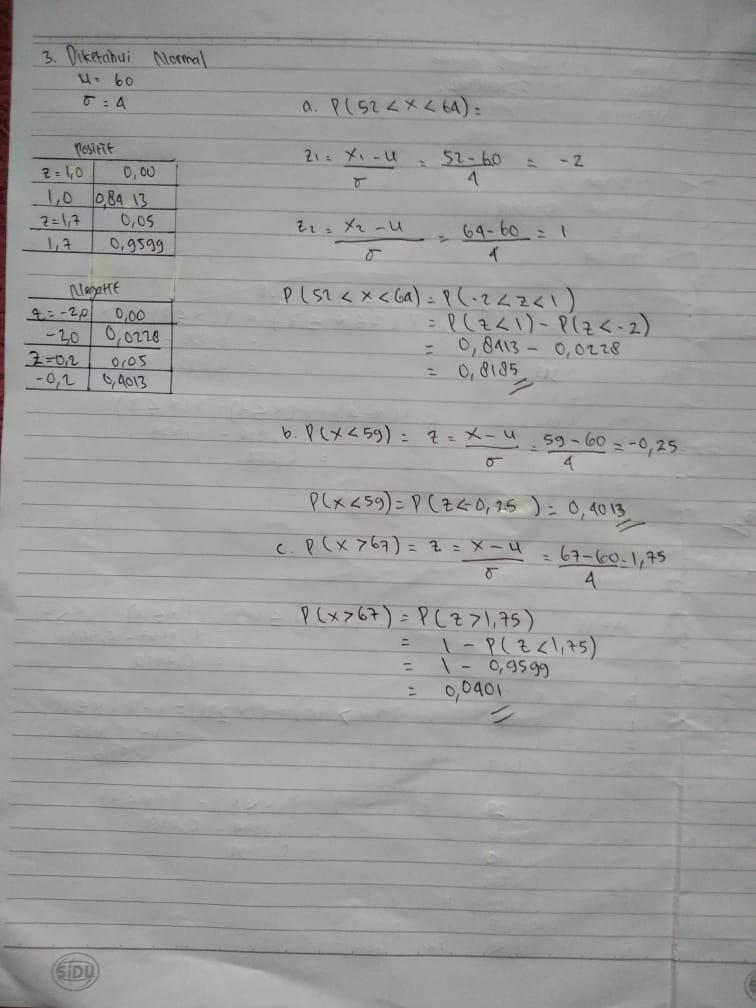 3. Diketahui Normal
μ = 60
σ = 4
Positif
z = 1,0 | 0,00
1,0 | 0,8413
z = 1,7 | 0,05
1,7 | 0,9599
Negatif
z = -2,0 | 0,00
-2,0 | 0,0228
z = -0,2 | 0,05
-0,2 | 0,4013
a. P(52 < x < 64) =
z₁ = x₁ - μ / σ = 52 - 60 / 4 = -2
z₂ = x₂ - μ / σ = 64 - 60 / 4 = 1
P(52 < x < 64) = P(-2 < z < 1)
= P(z < 1) - P(z < -2)
= 0,8413 - 0,0228
= 0,8185
b. P(x < 59) = z = x - μ / σ = 59 - 60 / 4 = -0,25
P(x < 59) = P(z < -0,25) = 0,4013
c. P(x > 67) = z = x - μ / σ = 67 - 60 / 4 = 1,75
P(x > 67) = P(z > 1,75)
= 1 - P(z < 1,75)
= 1 - 0,9599
= 0,0401
SiDU